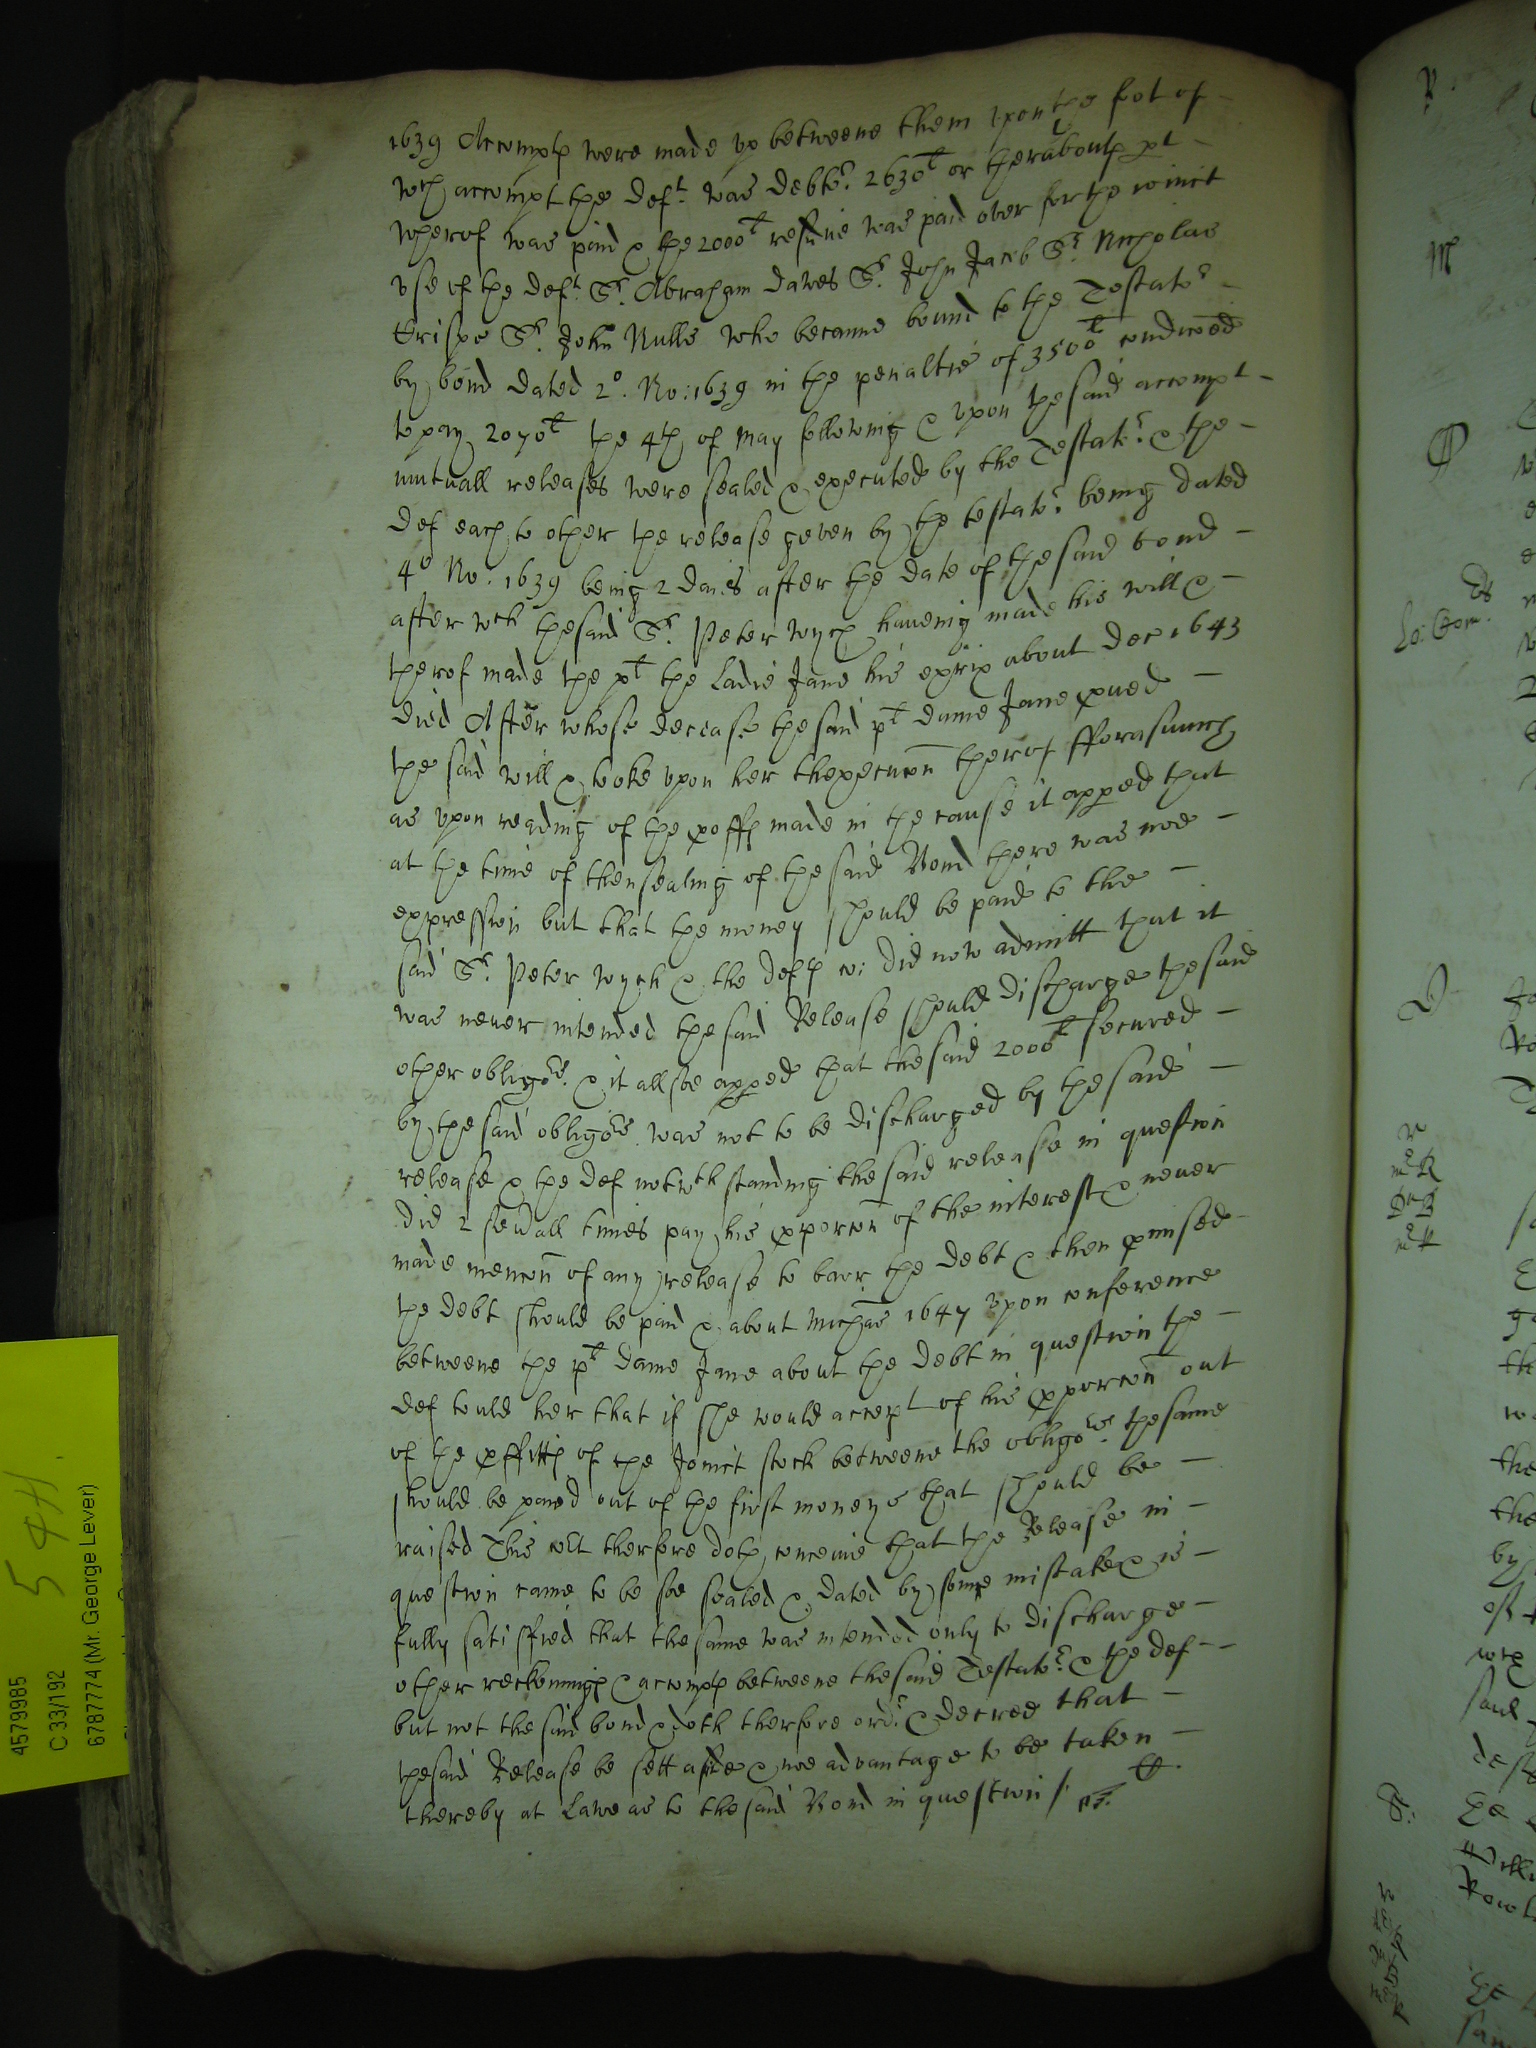 1639 Accompts were made up betweene them upon the foot of
wch accompt the deft. was debtor. 2630l or therabouts pt
wherof was paid & the 2000l residue was paid over for the ioinct
use of the deft. Sr. Abraham Dawes Sr. John Jacob Sr. Nicholas
Crispe Sr. John Nulls who became bound to the Testator
by bond dated 2o. No: 1639 in the penaltie of 3500l condiconed
to pay 2070l the 4th of May following & upon the said accompt
mutuall releases were sealed & executed by the Testator. & the
def each to other the release geven by the testator. being dated
4o No. 1639 being 2 daies after the date of the said bond
after wch the said Sr. Peter Wych haveing made his will &
therof made the plt the Ladie Jane his exrix about Dec 1643
died After whose decease the said plt dame Jane proved
the said will & tooke upon her thexecucon therof fforasmuch
as upon reading of the proffs made in the cause it appeed that
at the time of thensealing of the said Bond there was noe
expression but that the money should be paid to the
said Sr. Peter Wych & the defts co: did now admitt that it
was never intended the said Release should discharge the said
other obligors. & it allsoe appeed that the said 2000l secured
by the said obligors was not to be discharged by the said
release & the def notwth standing the said release in question
did 2 sevall times pay his proporcon of the interest & never
made mencon of any release to barr the debt & then promised
the debt should be paid & about Michas 1647 upon conference
betweene the plt dame Jane about the debt in question the
def tould her that if she would accept of his proporcon out
of the proffitts of the Joinct stock betweene the obligors. the same
should be paied out of the first moneys that should be
raised This cort therfore doth conceive that the Release in
question came to be soe sealed & dated by some mistake & is
fully satisfied that the same was intended only to discharge
other reckonings & accompts betweene the said Testator. & the def
but not the said bond & doth therfore order. & decree that
the said Release be sett aside & noe advantage to be taken
thereby at Lawe as to the said Bond in question
54H.
4579985
C 33/192
6787774 (Mr. George Lever)